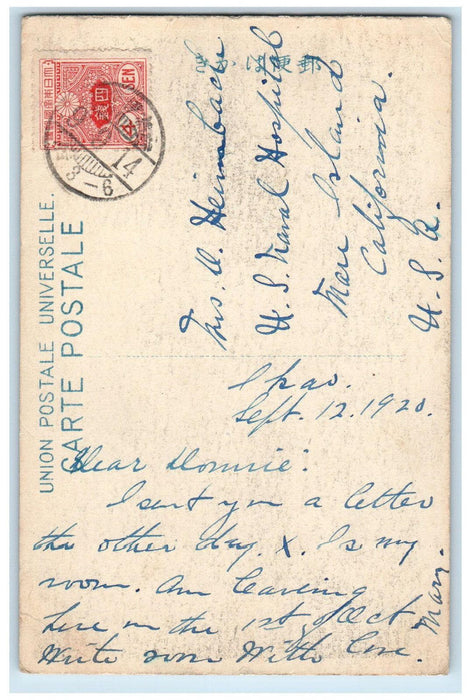 郵便はかき
UNION POSTALE UNIVERSELLE.
CARTE POSTALE
SEN
四銭
14
3-6
Mrs. D. Heimbach
U. S. Naval Hospital
Mare Island
California.
U. S. A.
Sept. 12. 1920.
Dear Donnie:
I sent you a letter
the other day. X. Is my
room. Am leaving
here on the 1st of Oct
Write soon With love.
Mary.